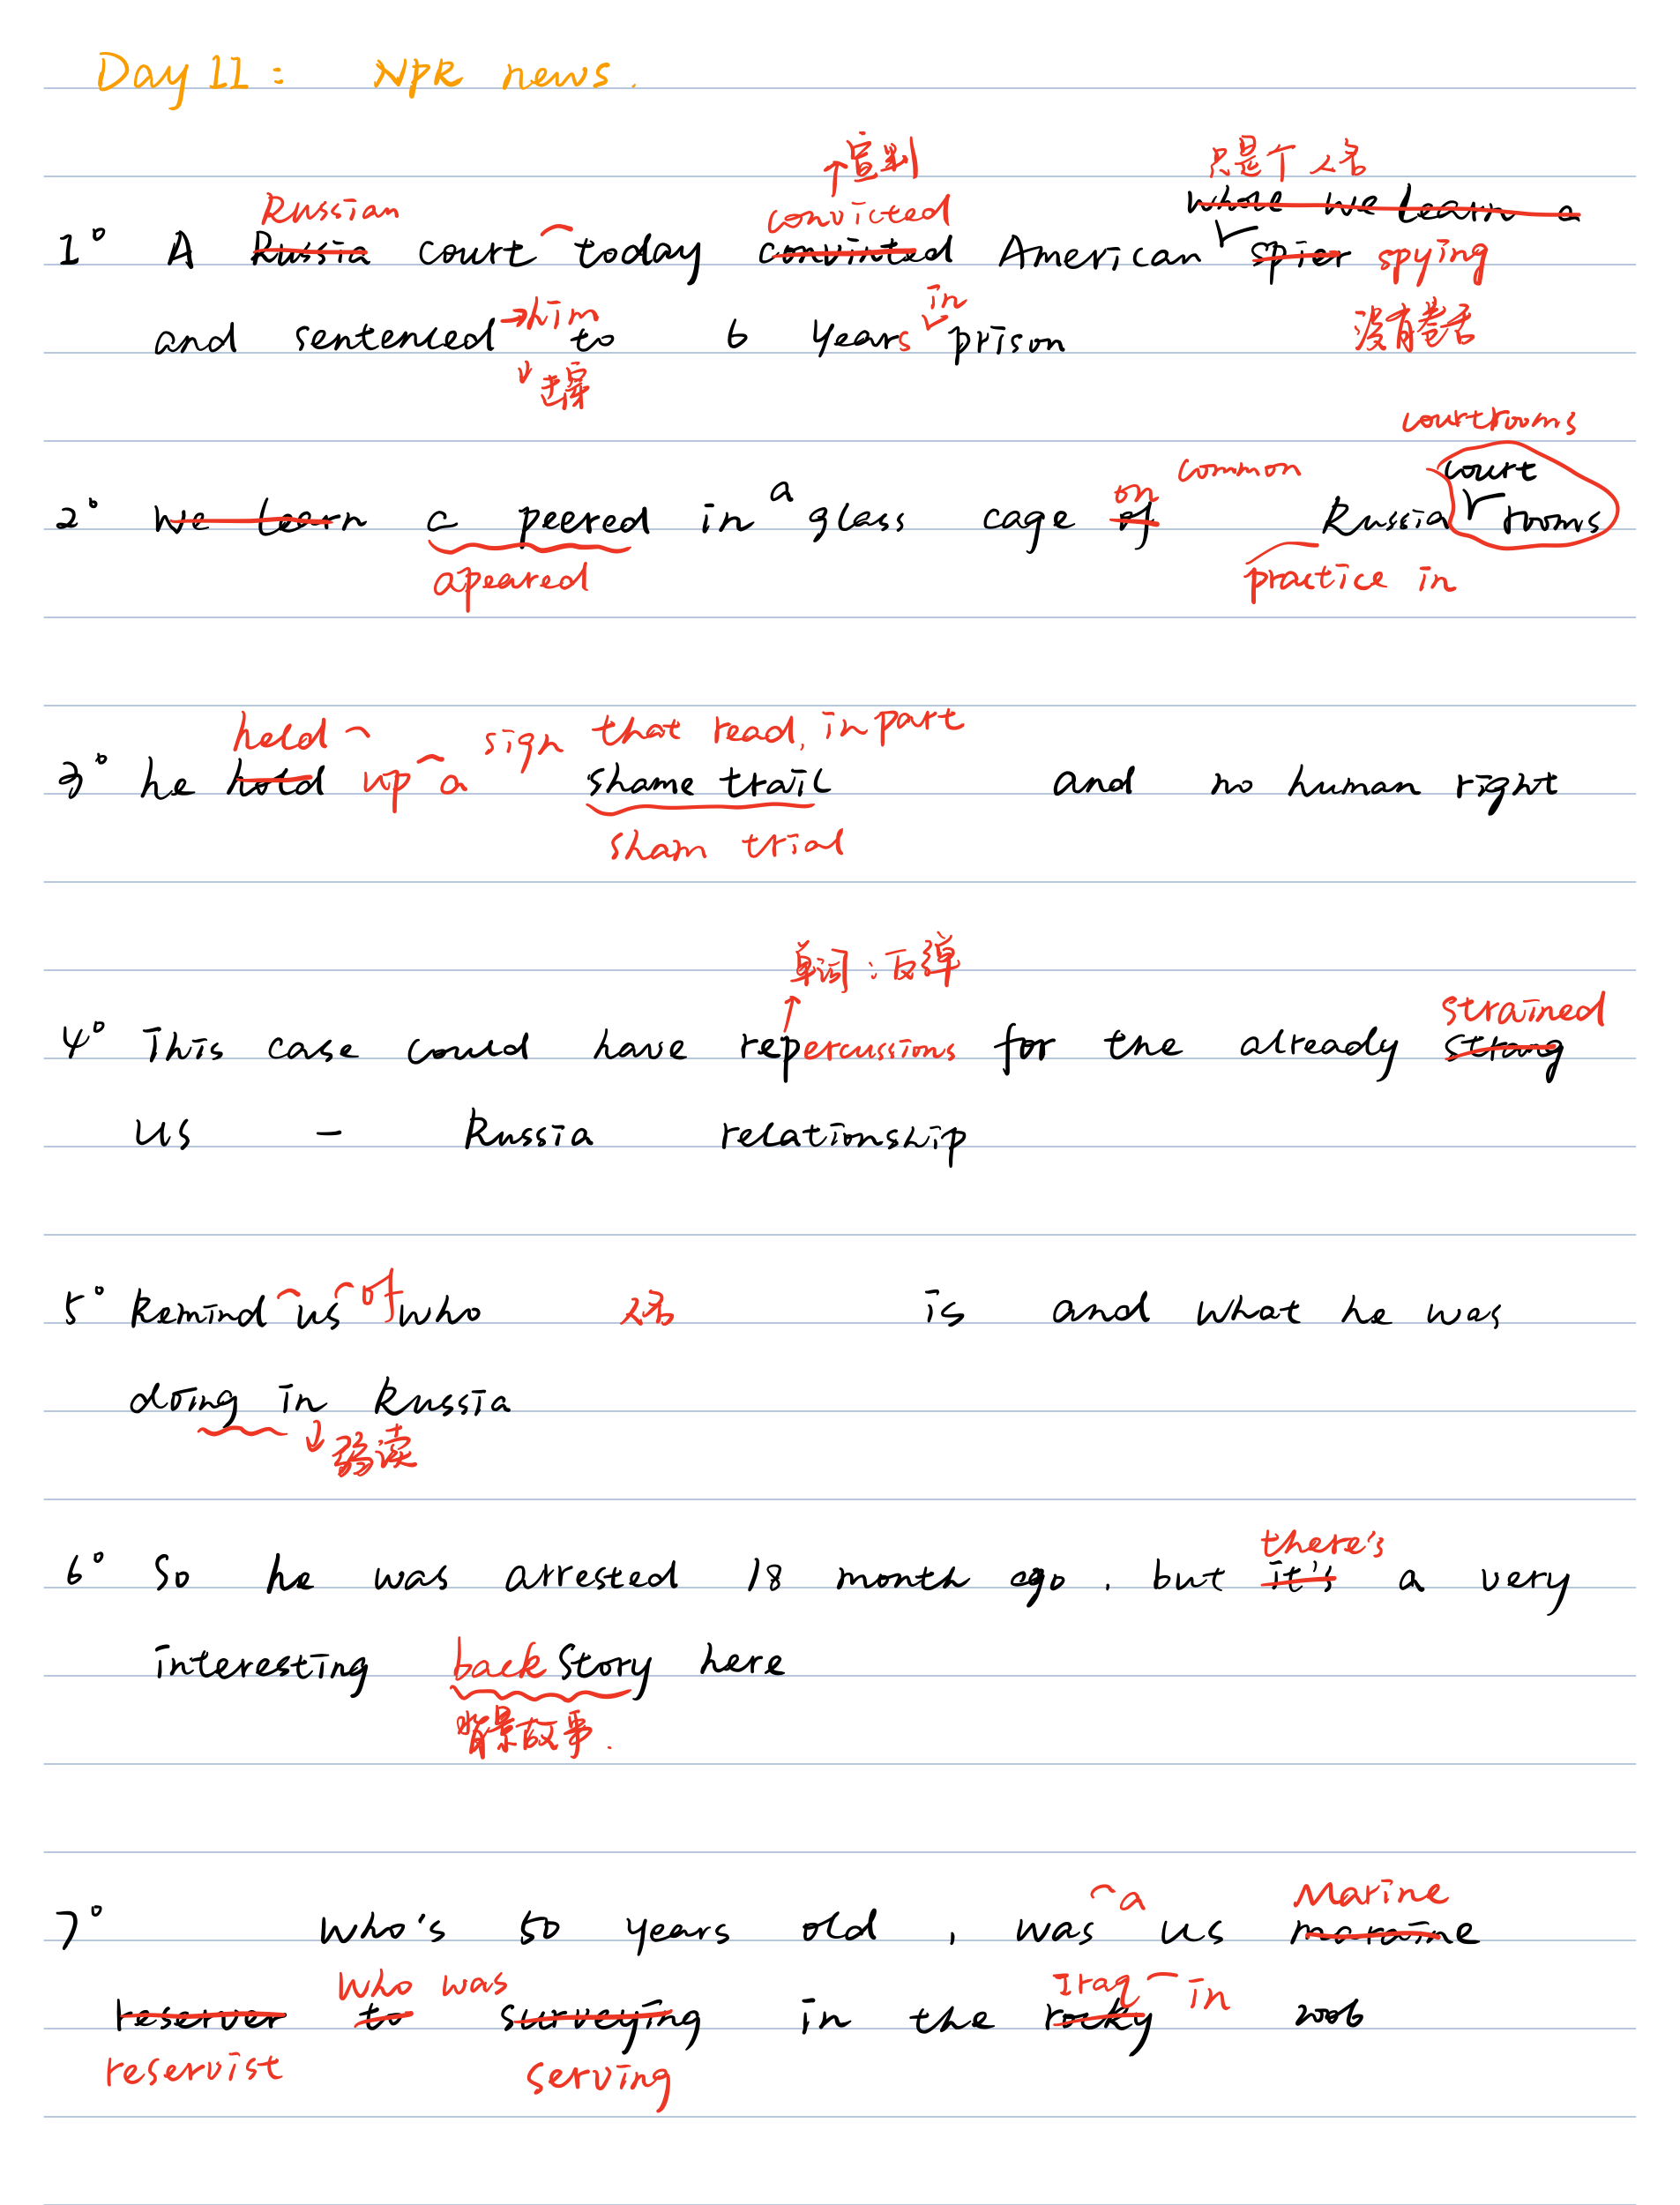 Day 11: NPR news.
↑宣判 只是个人名
Russian convicted whole we learn a
1° A Russia court today convinted American spier spying
→him in 没有卷舌
and sentenced to 6 years prison
↓定罪
courtrooms
a on common court
2° we learn a peered in glass cage of Russia rooms
apeared practice in
held sign that read, in part
3° he hold up a shame trail and no human right
sham trial
单词:反弹
strained
4° This case could have repercussions for the already strang
US - Russia relationship
5° Remind us of who 人名 is and what he was
doing in Russia
↓弱读
there's
6° So he was arrested 18 month ago, but it's a very
interesting back story here
背景故事.
a Marine
7° who's 50 years old, was us maraine
who was Iraq in
reserver to surveying in the rocky 2006
reservist serving